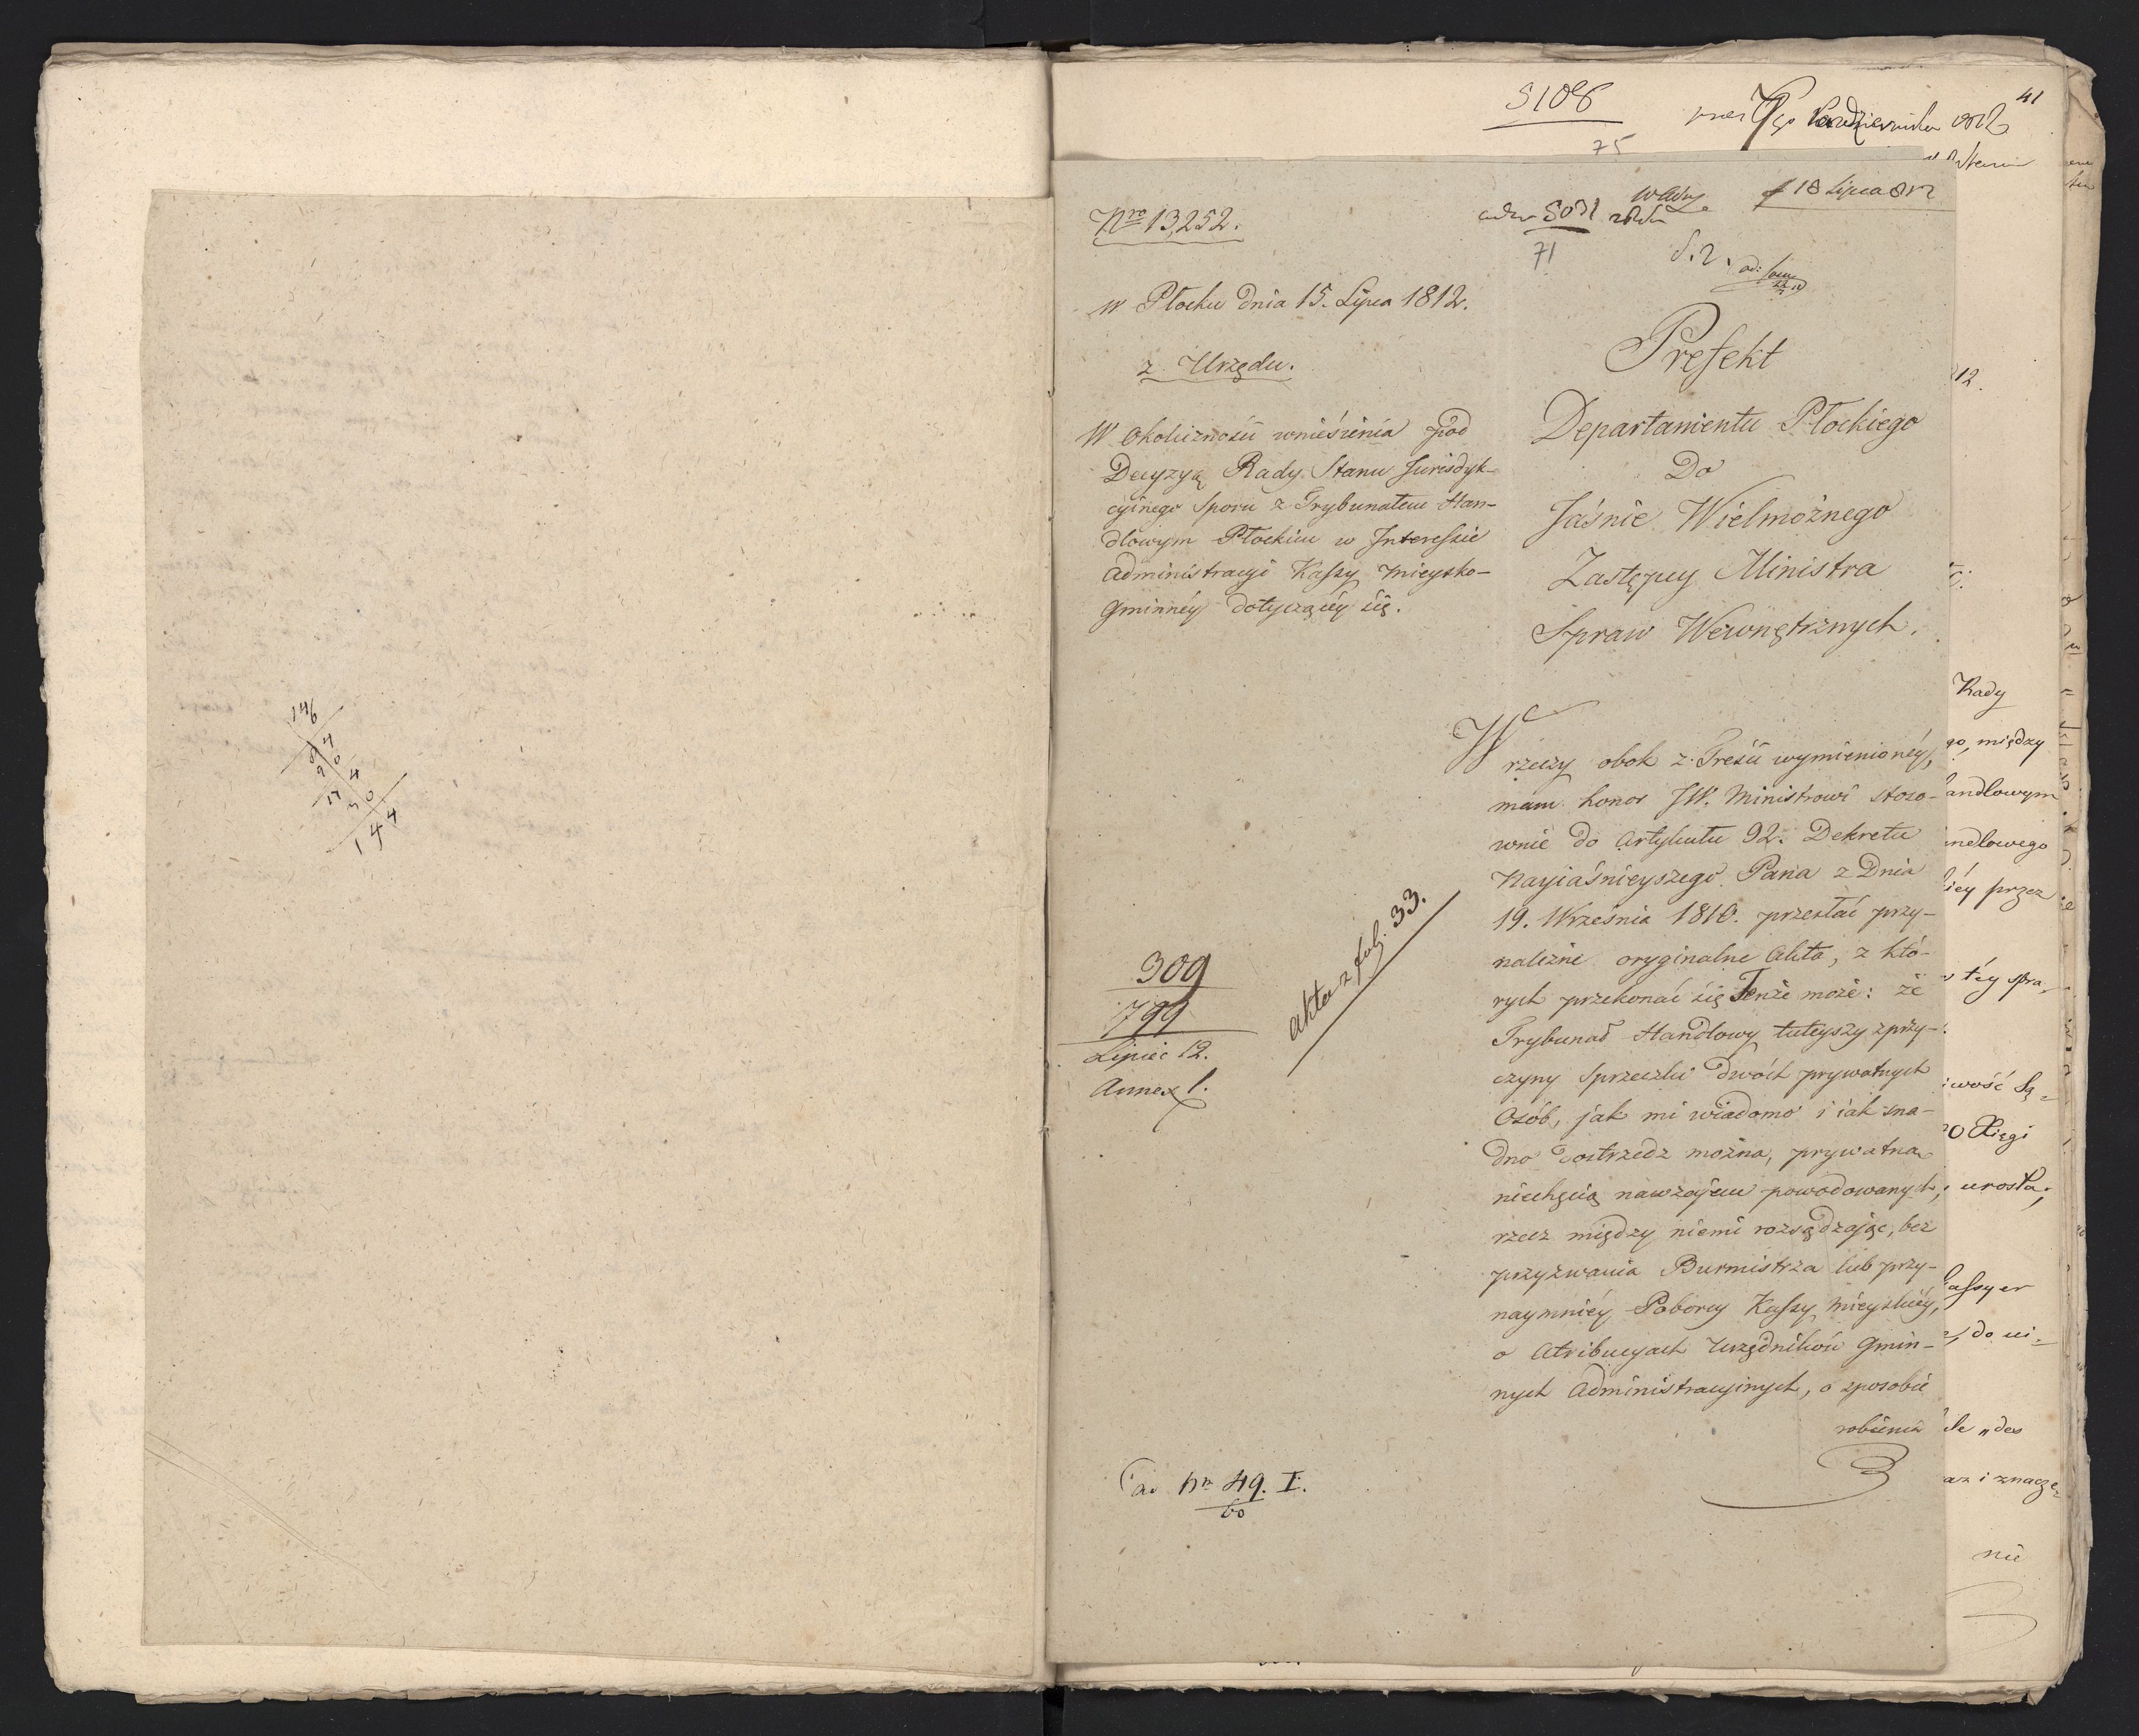 146
144
5108
41
Października 812
75
Nro 13,252.
5031
18 Lipca 812
71
w Płocku dnia 15. Lipca 1812.
z Urzędu.
W okoliczności wnieśienia pod
Decyzyą Rady Stanu Jurisdyk-
cyinego Sporu z Trybunałem Han-
dlowym Płockim w Interessie
Administracyi Kassy Mieysko-
Gminnéy dotyczącéy się.
Prefekt
Departamentu Płockiego
Do
Jaśnie Wielmożnego
Zastępcy Ministra
Spraw Wewnętrznych.
W rzeczy obok z Treści wymienionéy,
mam honor JW. Ministrowi stoso-
wnie do Artykułu 92. Dekretu
Nayiaśnieyszego Pana z Dnia
19. Września 1810. przesłać przy-
należne oryginalne Akta, z któ-
rych przekonać się Tenże może: że
Trybunał Handlowy tuteyszy zprzy-
czyny Sprzeczki dwóch prywatnych
Osób, jak mi wiadomo i iak sna-
dno dostrzedz można, prywatną
niechęcią nawzajem powodowanych,
rzecz między niemi rozsądzając, bez
przyzwania Burmistrza lub przy-
naymniéy Poborcy Kassy Mieyskiéy,
o Atribucyach Urzędników Gmin-
nych Administracyinych, o sposobie
robienia
309
799
Lipiec 12.
Annex 1.
akta z fol. 33.
ad Nr 49. I.
60
812.
Rady
go, między
andlowym
ndlowego
iéy przez
téy spra-
iwość Są-
Xięgi
urosła,
assyer
do ui-
"des
az i znacze-
nie